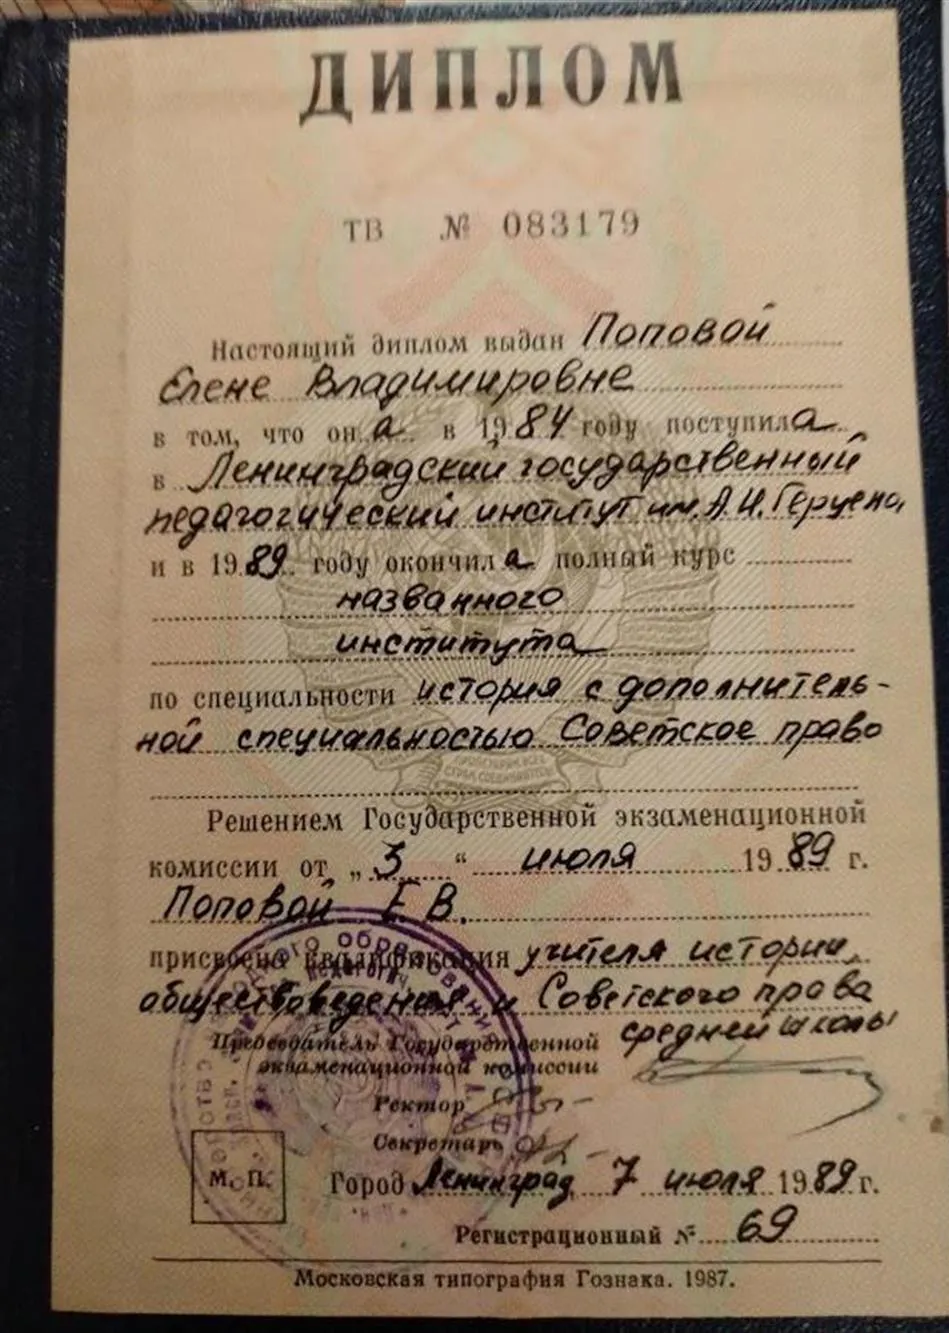 ДИПЛОМ
ТВ № 083179
Настоящий диплом выдан Поповой
Елене Владимировне
в том, что она в 1984 году поступила
в Ленинградский государственный
педагогический институт им. А.И. Герцена
и в 1989 году окончила полный курс
названного
института
по специальности история с дополнитель-
ной специальностью Советское право
Решением Государственной экзаменационной
комиссии от „3“ июля 1989 г.
Поповой Е В.
присвоена квалификация учителя истории,
обществоведения и Советского права
средней школы
Председатель Государственной
экзаменационной комиссии
Ректор
Секретарь
М. П.
Город Ленинград, 7 июля 1989 г.
Регистрационный № 69
Московская типография Гознака. 1987.